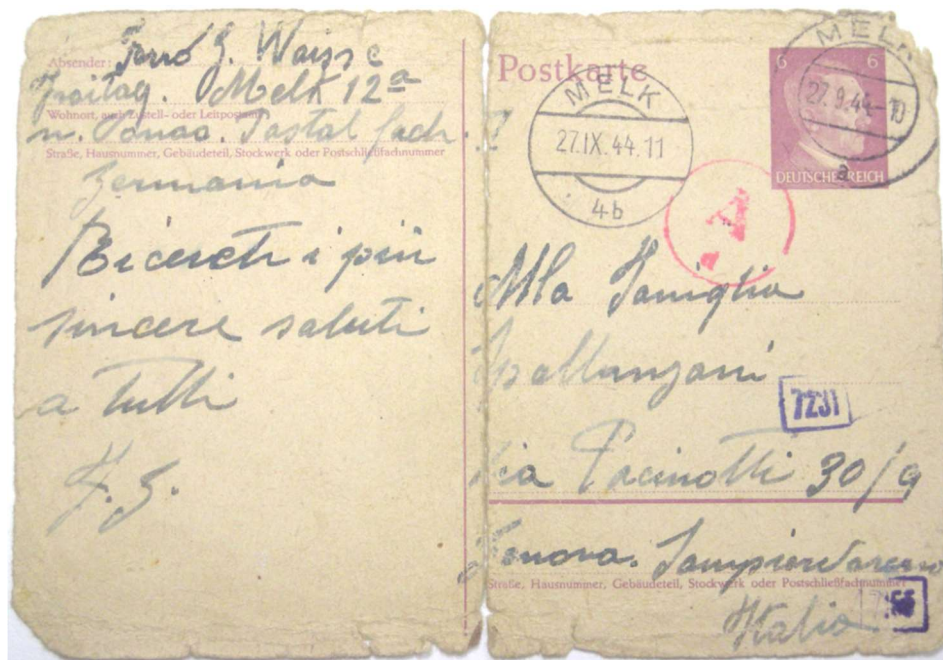 Absender: Ferro G. Waisse
Freitag. Melk 12a
Wohnort, auch Zustell- oder Leitpostamt
n. Donao. Postal fach.
Straße, Hausnummer, Gebäudeteil, Stockwerk oder Postschließfachnummer
Germania
Ricevete i più
sincere saluti
a tutti
F. G.
Postkarte
MELK
27.IX.44.11
4b
MELK
27.9.44-10
a
6 6
DEUTSCHES REICH
A
Alla Famiglia
Spallanzani
7231
Via Pacinotti 30/9
Genova. Sampierdarena
Straße, Hausnummer, Gebäudeteil, Stockwerk oder Postschließfachnummer
Italia